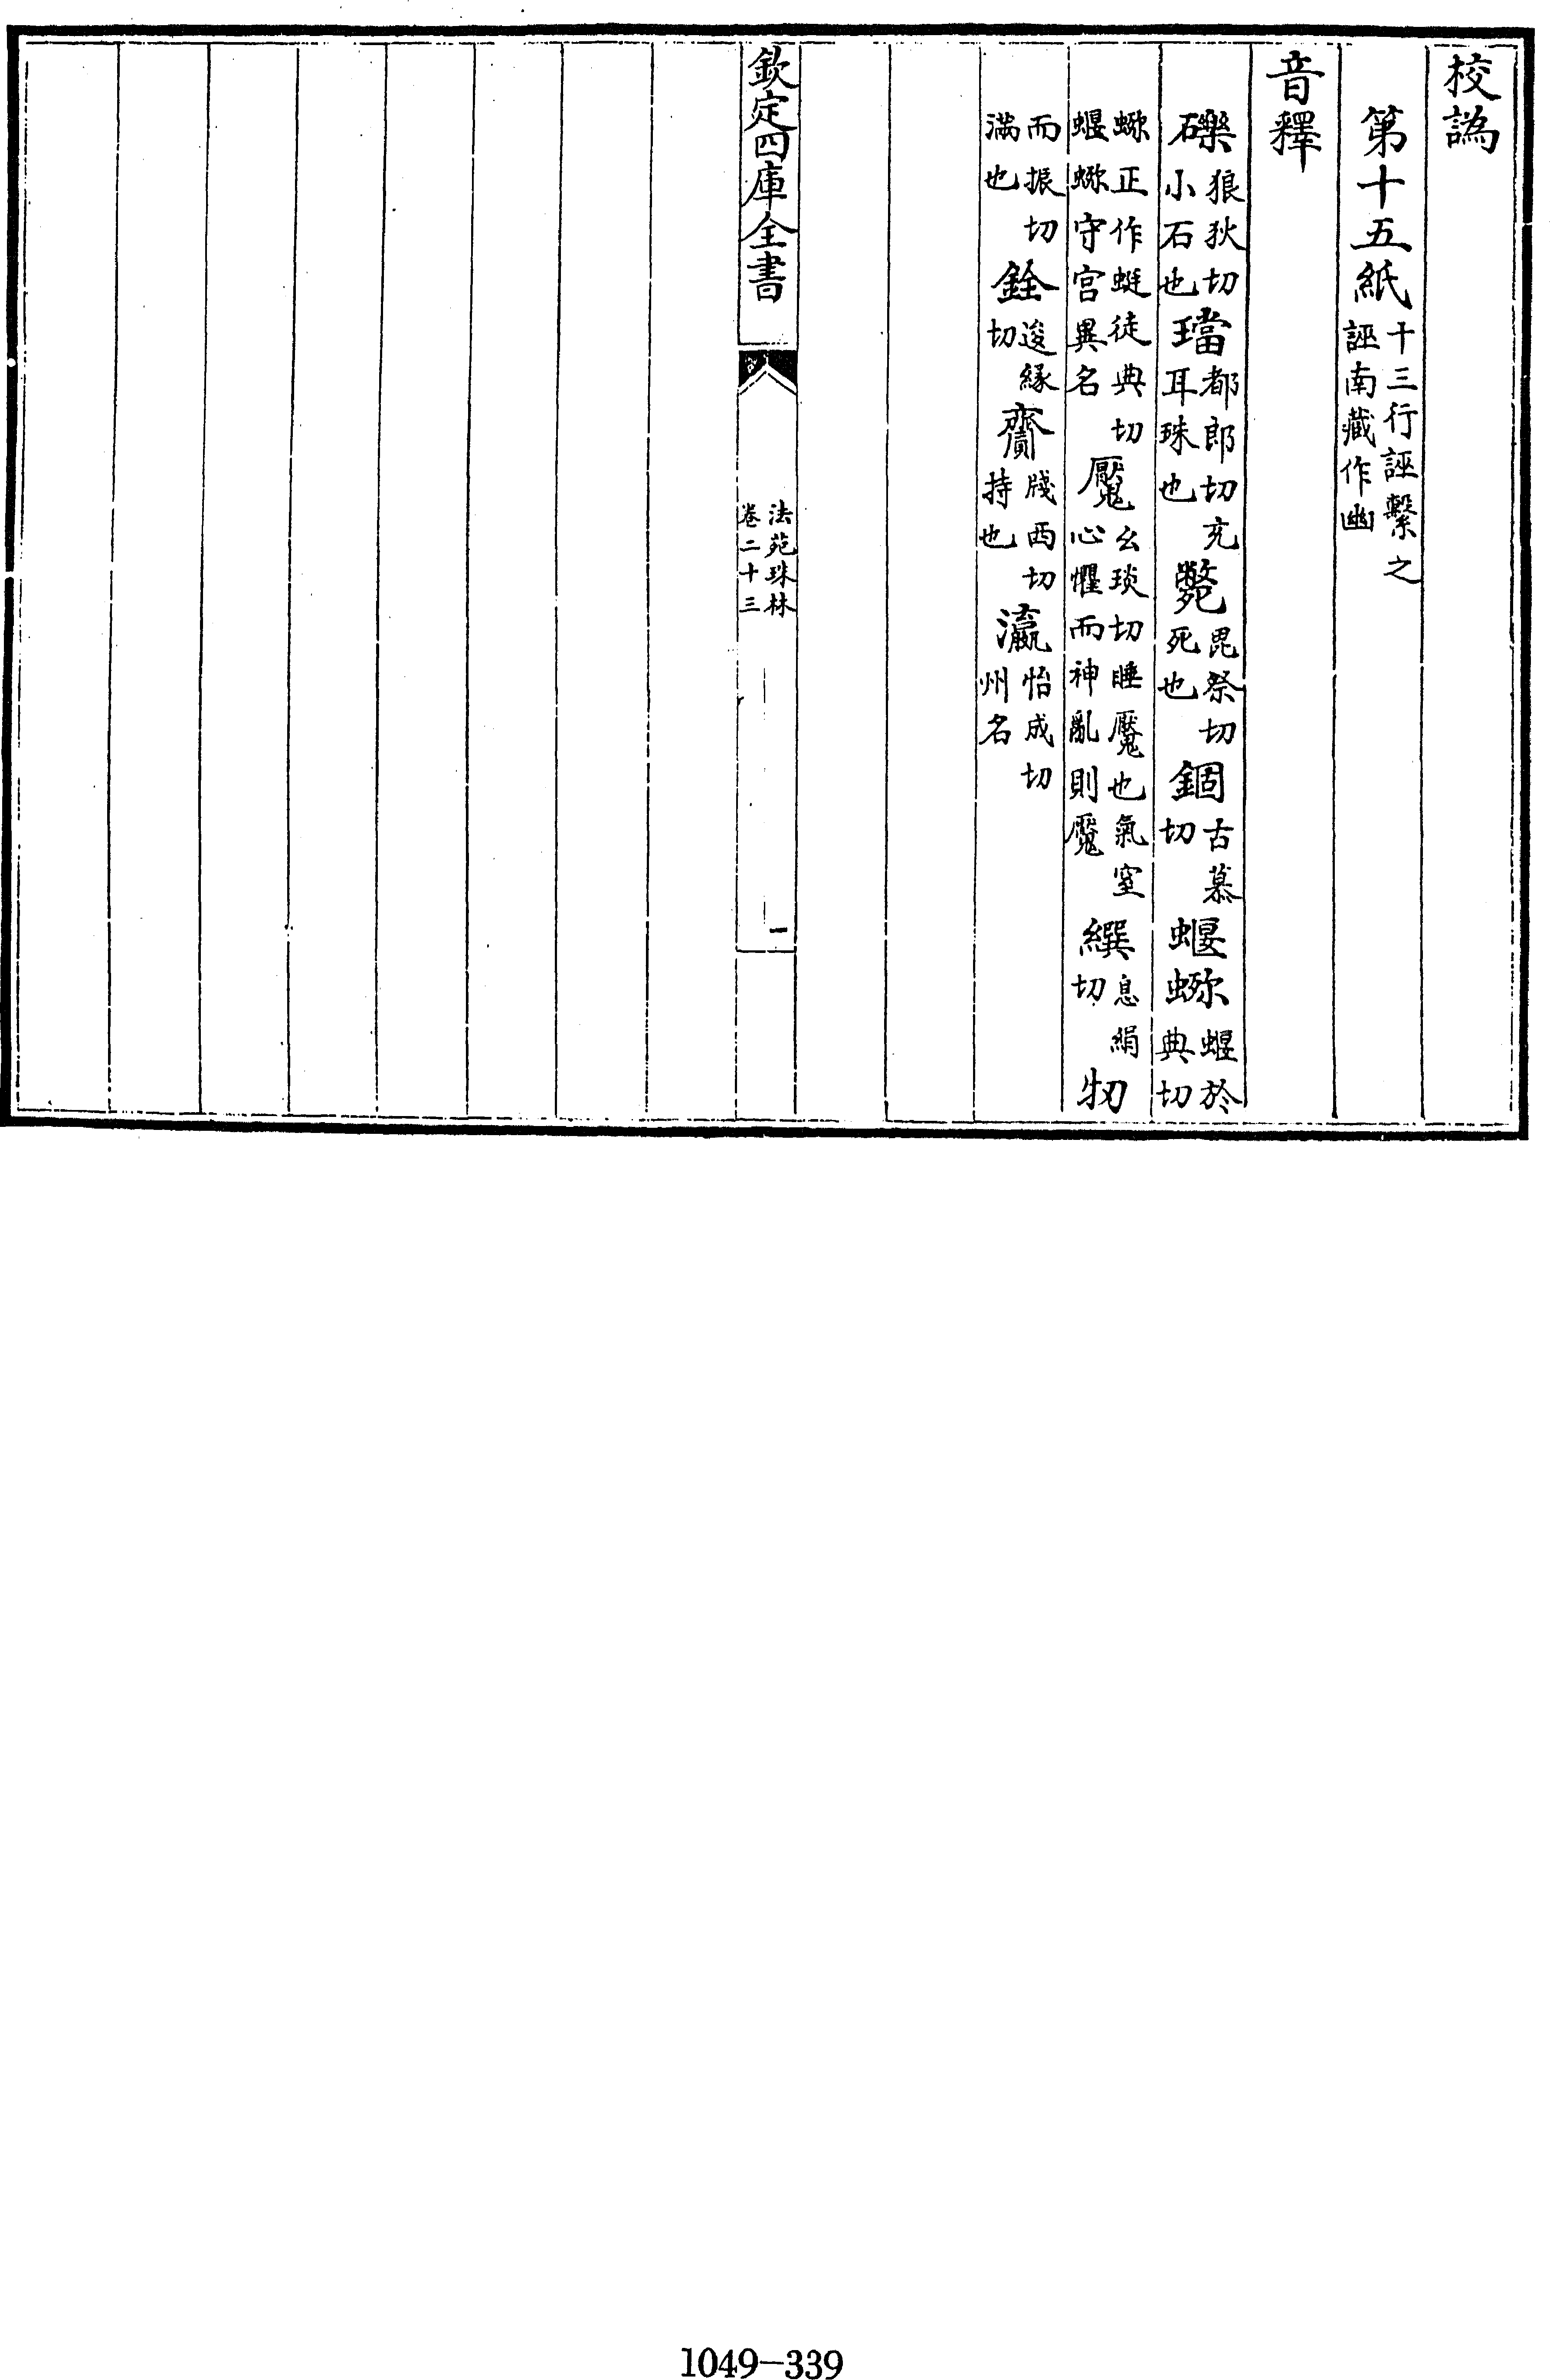 校譌
第十五紙十三行誣繫之誣南藏作幽
音釋
礫狼狄切小石也璫都郎切充耳珠也斃毘祭切死也錮古慕切蝘𧔥蝘於典切
𧔥正作蜓徒典切蝘𧔥守宫異名魘幺琰切睡魘也氣窒心懼而神亂則魘繏息絹切牣
而振切滿也銓逡緣切齎牋西切持也瀛怡成切州名
欽定四庫全書
法苑珠林
卷二十三
一
1049-339